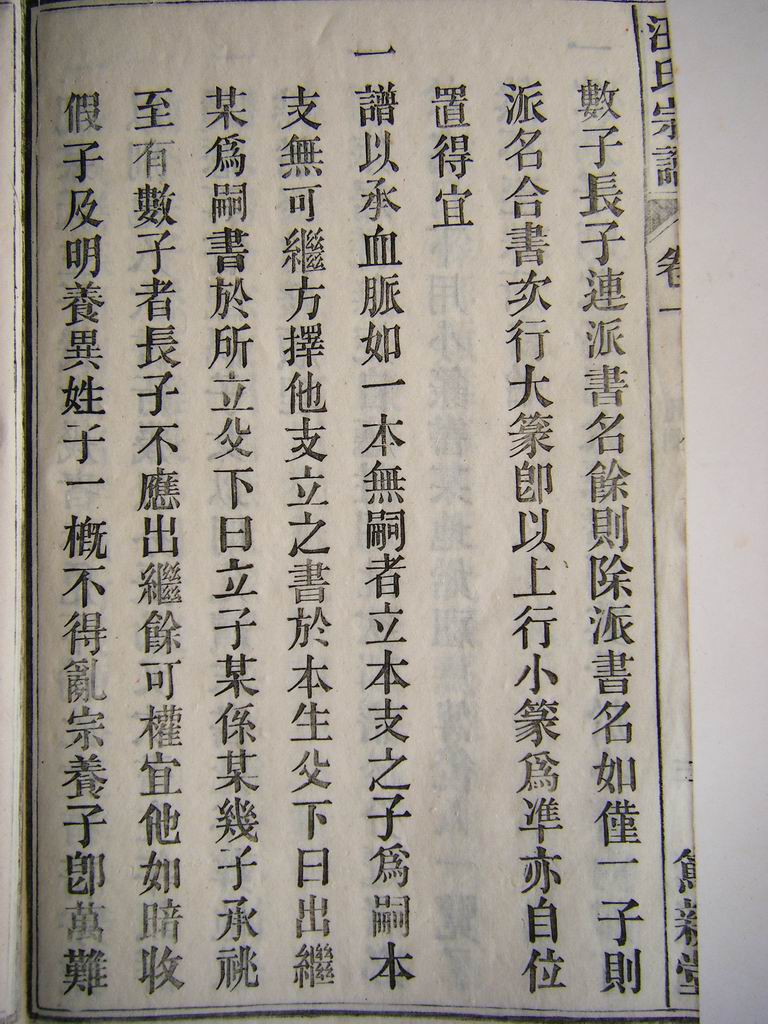 汪氏宗譜 卷一 親堂
數子長子連派書名餘則除派書名如僅一子則
派名合書次行大篆卽以上行小篆爲準亦自位
置得宜
一譜以承血脈如一本無嗣者立本支之子爲嗣本
支無可繼方擇他支立之書於本生父下曰出繼
某爲嗣書於所立父下曰立子某係某幾子承祧
至有數子者長子不應出繼餘可權宜他如暗收
假子及明養異姓子一槪不得亂宗養子卽萬難